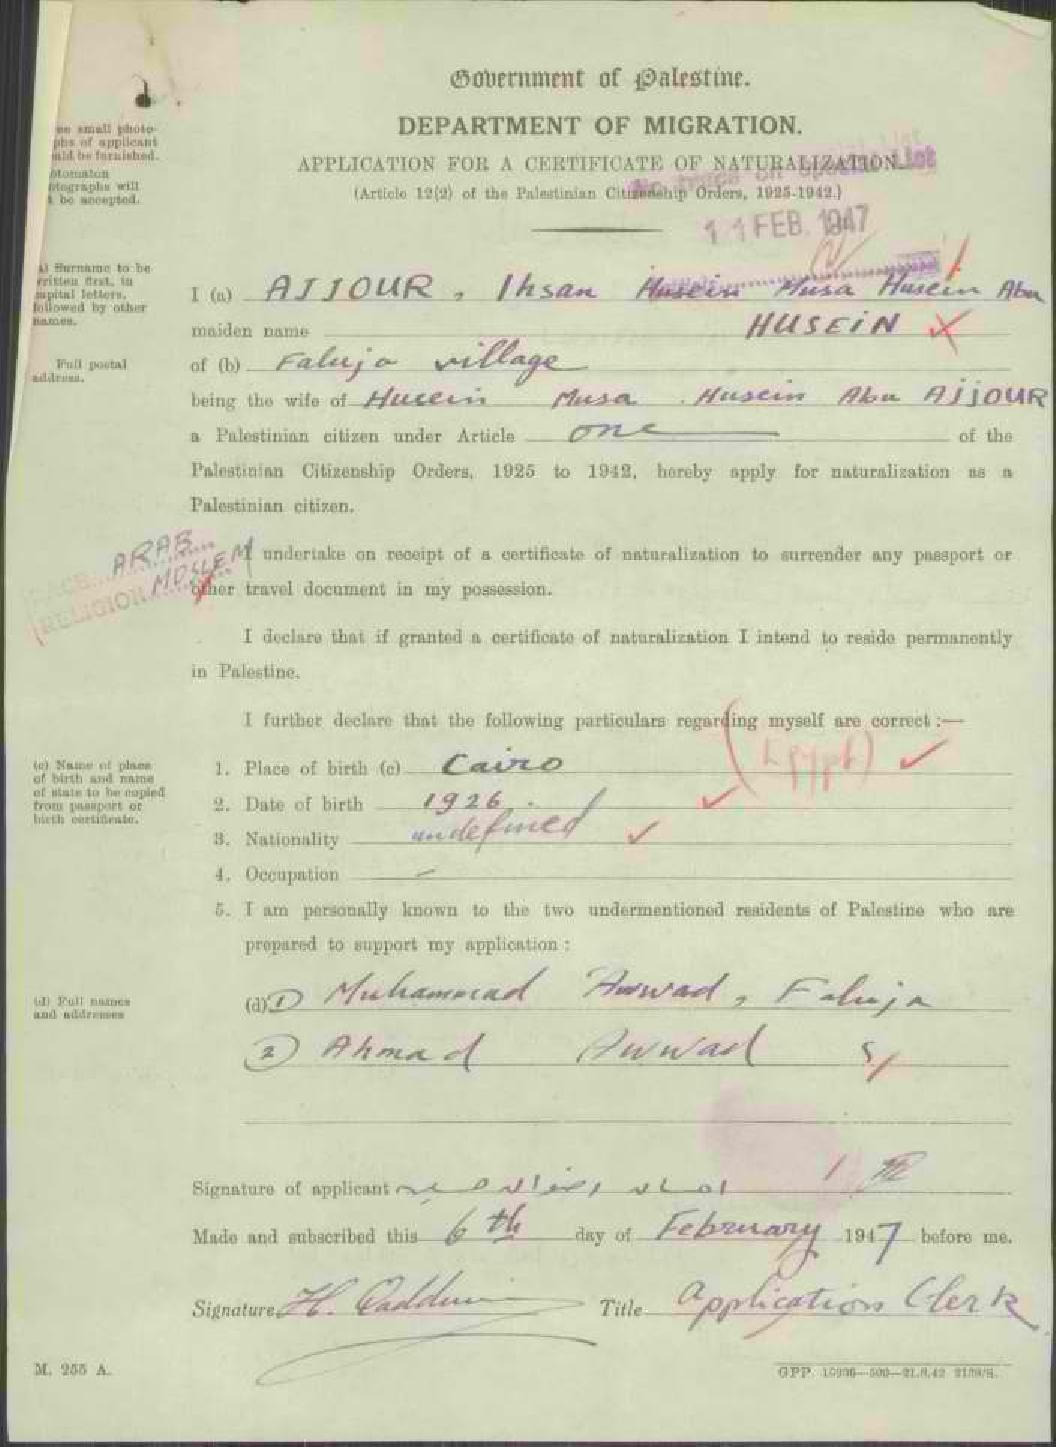 Government of Palestine.
DEPARTMENT OF MIGRATION.
APPLICATION FOR A CERTIFICATE OF NATURALIZATION
(Article 12(2) of the Palestinian Citizenship Orders, 1925-1942.)
No trace on Special List
11 FEB. 1947
ee small photo-
phs of applicant
uld be furnished.
otomaton
otographs will
t be accepted.
a) Surname to be
written first, in
capital letters,
followed by other
names.
I (a) AJJOUR, Ihsan Husein Musa Husein Abu
maiden name HUSEIN
Full postal
address.
of (b) Faluja village
being the wife of Husein Musa Husein Abu AJJOUR
a Palestinian citizen under Article one of the
Palestinian Citizenship Orders, 1925 to 1942, hereby apply for naturalization as a
Palestinian citizen.
RACE ARAB
RELIGION MOSLEM
I undertake on receipt of a certificate of naturalization to surrender any passport or
other travel document in my possession.
I declare that if granted a certificate of naturalization I intend to reside permanently
in Palestine.
I further declare that the following particulars regarding myself are correct :—
(c) Name of place
of birth and name
of state to be copied
from passport or
birth certificate.
1. Place of birth (c) Cairo (Egypt)
2. Date of birth 1926.
3. Nationality undefined
4. Occupation —
5. I am personally known to the two undermentioned residents of Palestine who are
prepared to support my application :
(d) Full names
and addresses
(d) 1) Muhammad Awwad, Faluja
2) Ahmad Awwad
Signature of applicant
Made and subscribed this 6th day of February 1947 before me.
Signature H. Title Application Clerk
M. 255 A.
GPP. 10936—500—21.8.42